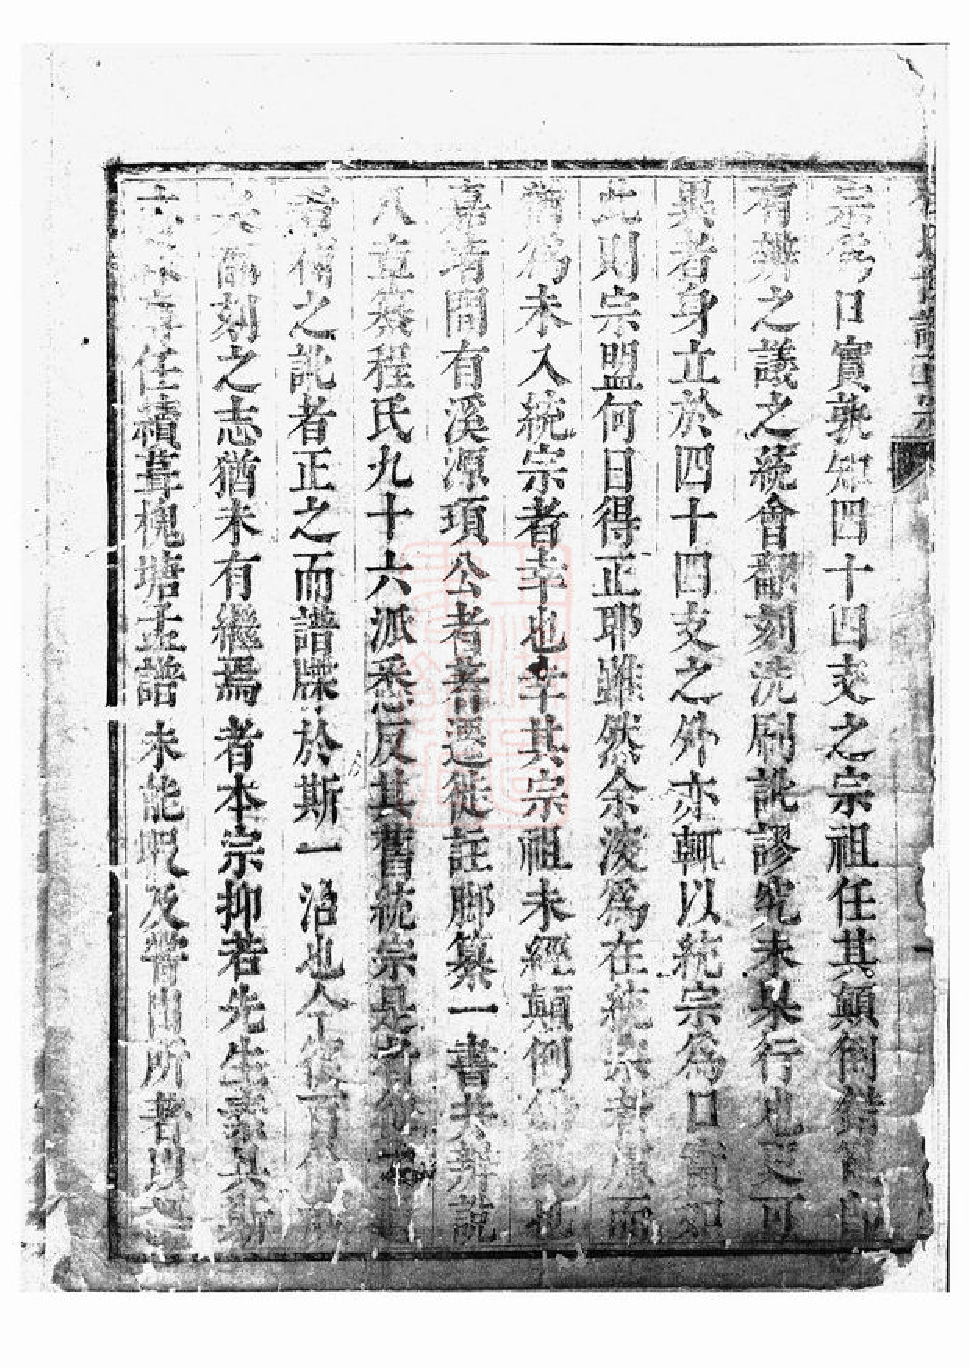 宗為口實孰知四十四支之宗祖任其顛倒錯亂
有辨之議之統會翻刻洗刷訛謬究未果行也更可
異者身立於四十四支之外亦輒以統宗為口實如
此則宗盟何日得正耶雖然余淺為在統宗者慮而
猶為未入統宗者幸也幸其宗祖未經顛倒錯亂也
嘉靖間有溪源項公者著遷徙註脚纂一書共辨說
八章幷程氏九十六派悉反其舊統宗是者
之訛者正之而譜牒於斯一治也今復百
刻之志猶未有繼焉者本宗抑若先生素具斯
任續葺槐塘孟譜未能暇及嘗出所著以